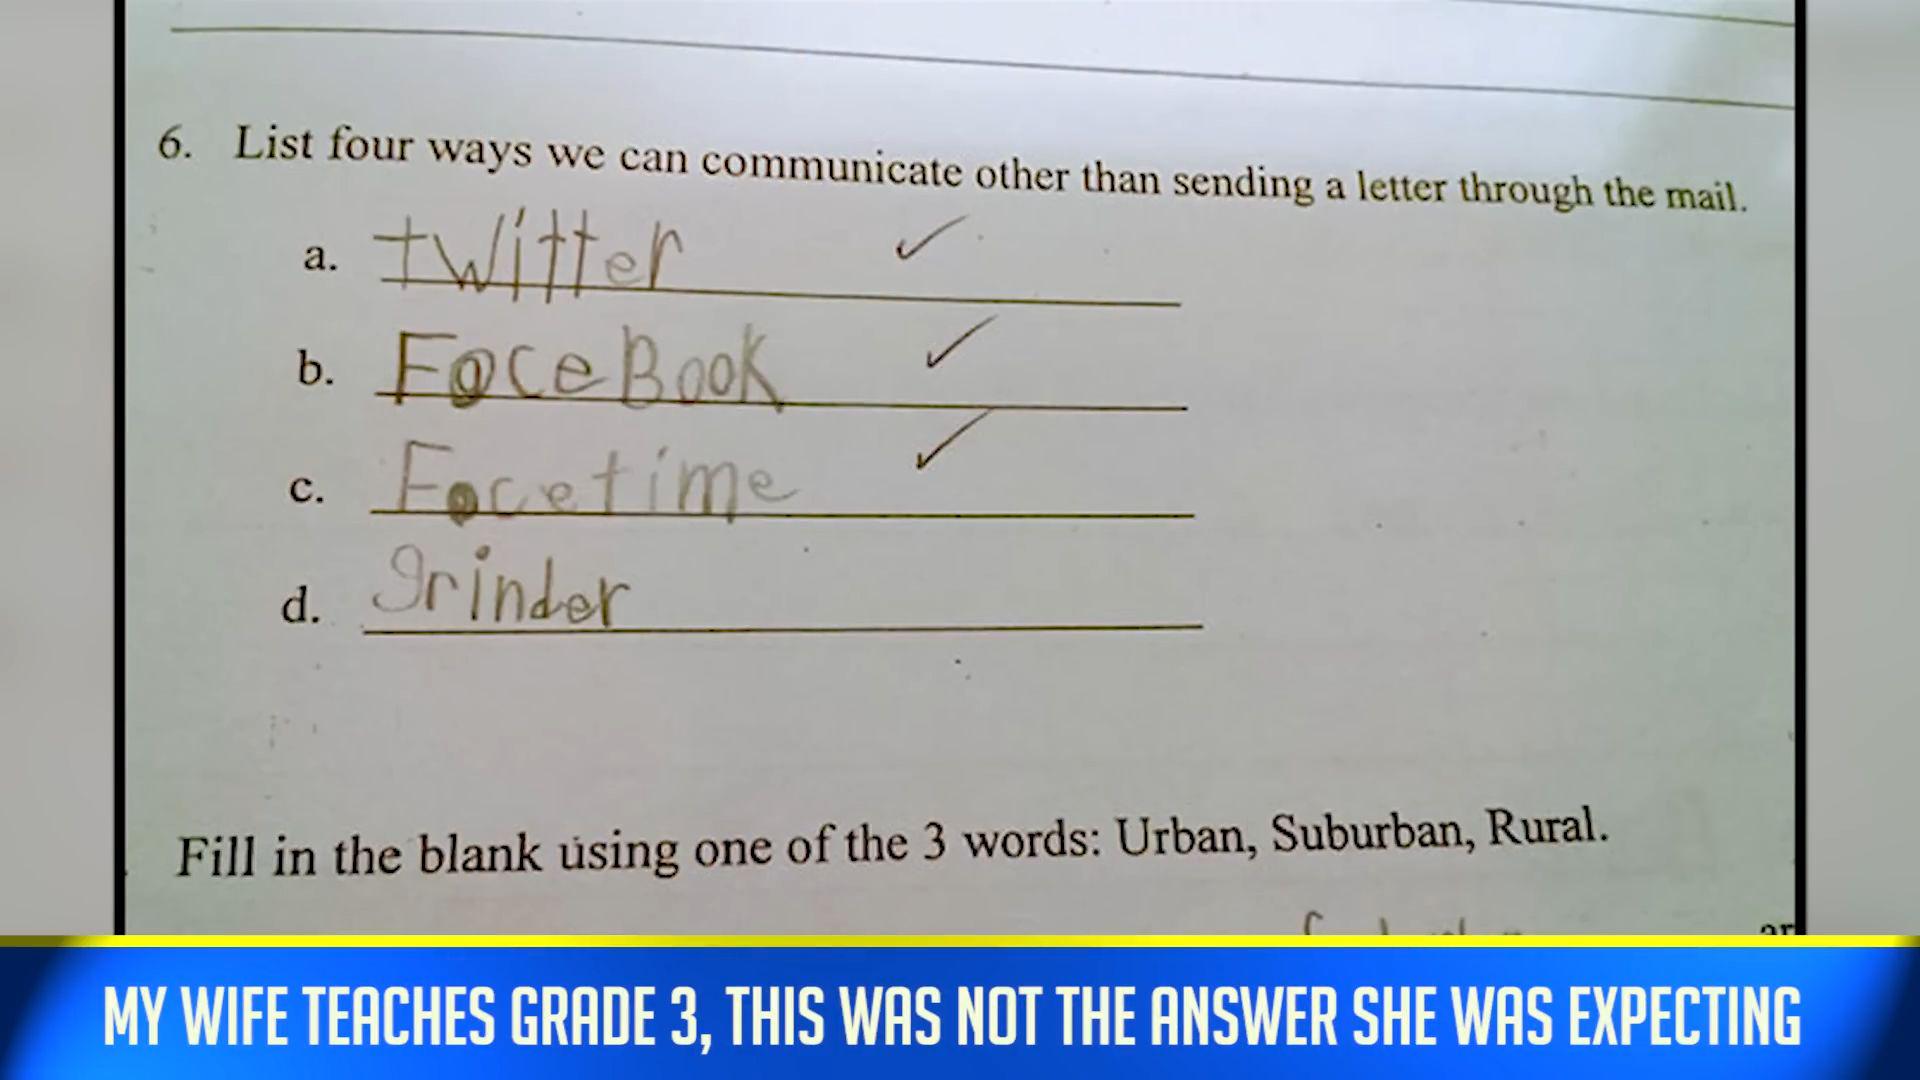 6. List four ways we can communicate other than sending a letter through the mail.
a. twitter ✓
b. FaceBook ✓
c. Facetime ✓
d. grinder
Fill in the blank using one of the 3 words: Urban, Suburban, Rural.
MY WIFE TEACHES GRADE 3, THIS WAS NOT THE ANSWER SHE WAS EXPECTING